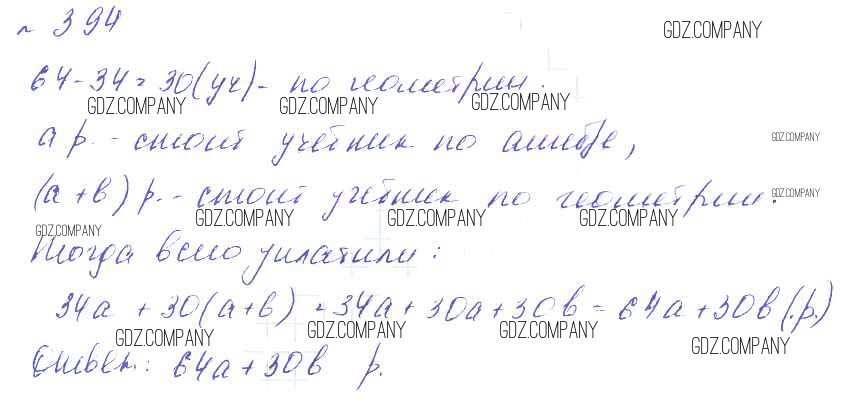 № 394
GDZ.COMPANY
64-34=30(уч)- по геометрии.
GDZ.COMPANY GDZ.COMPANY GDZ.COMPANY
а р. - стоит учебник по алгебре,
GDZ.COMPANY
(а+в) р. - стоит учебник по геометрии.
GDZ.COMPANY
GDZ.COMPANY GDZ.COMPANY GDZ.COMPANY
GDZ.COMPANY
Тогда всего уплатили:
34а + 30(а+в) = 34а+30а+30в = 64а+30в(р.)
GDZ.COMPANY GDZ.COMPANY GDZ.COMPANY
GDZ.COMPANY
Ответ: 64а+30в р.